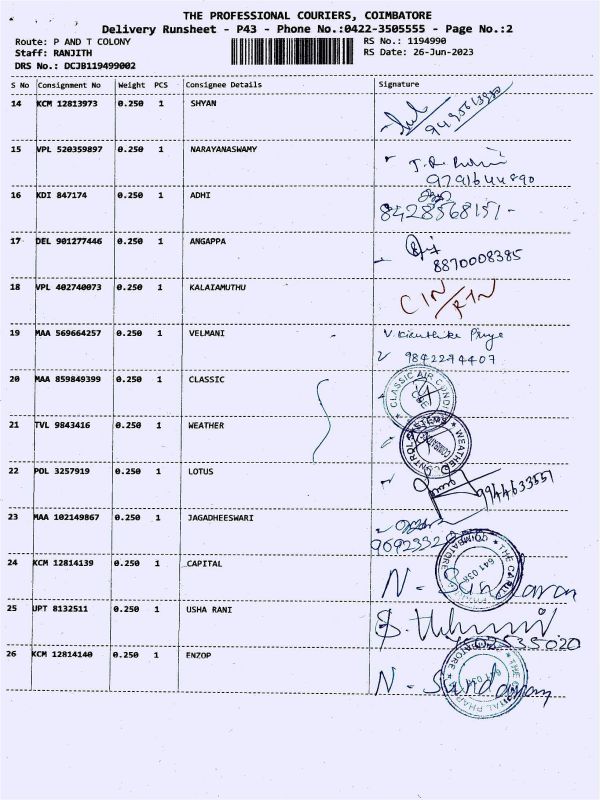 THE PROFESSIONAL COURIERS, COIMBATORE
Delivery Runsheet - P43 - Phone No.:0422-3505555 - Page No.:2
Route: P AND T COLONY RS No.: 1194990
Staff: RANJITH RS Date: 26-Jun-2023
DRS No.: DCJB119499002
S No Consignment No Weight PCS Consignee Details Signature
14 KCM 12813973 0.250 1 SHYAN
15 VPL 520359897 0.250 1 NARAYANASWAMY
9791644890
16 KDI 847174 0.250 1 ADHI
8428568151-
17 DEL 901277446 0.250 1 ANGAPPA
8870008385
18 VPL 402740073 0.250 1 KALAIAMUTHU
CIN/RTN
19 MAA 569664257 0.250 1 VELMANI
9842274407
20 MAA 859849399 0.250 1 CLASSIC
CLASSIC AIR CONDI
21 TVL 9843416 0.250 1 WEATHER
WEATHER CONTROL SYSTEMS
22 POL 3257919 0.250 1 LOTUS
9944633557
23 MAA 102149867 0.250 1 JAGADHEESWARI
24 KCM 12814139 0.250 1 CAPITAL
COIMBATORE 641 038
25 UPT 8132511 0.250 1 USHA RANI
26 KCM 12814140 0.250 1 ENZOP
N. Sundaram